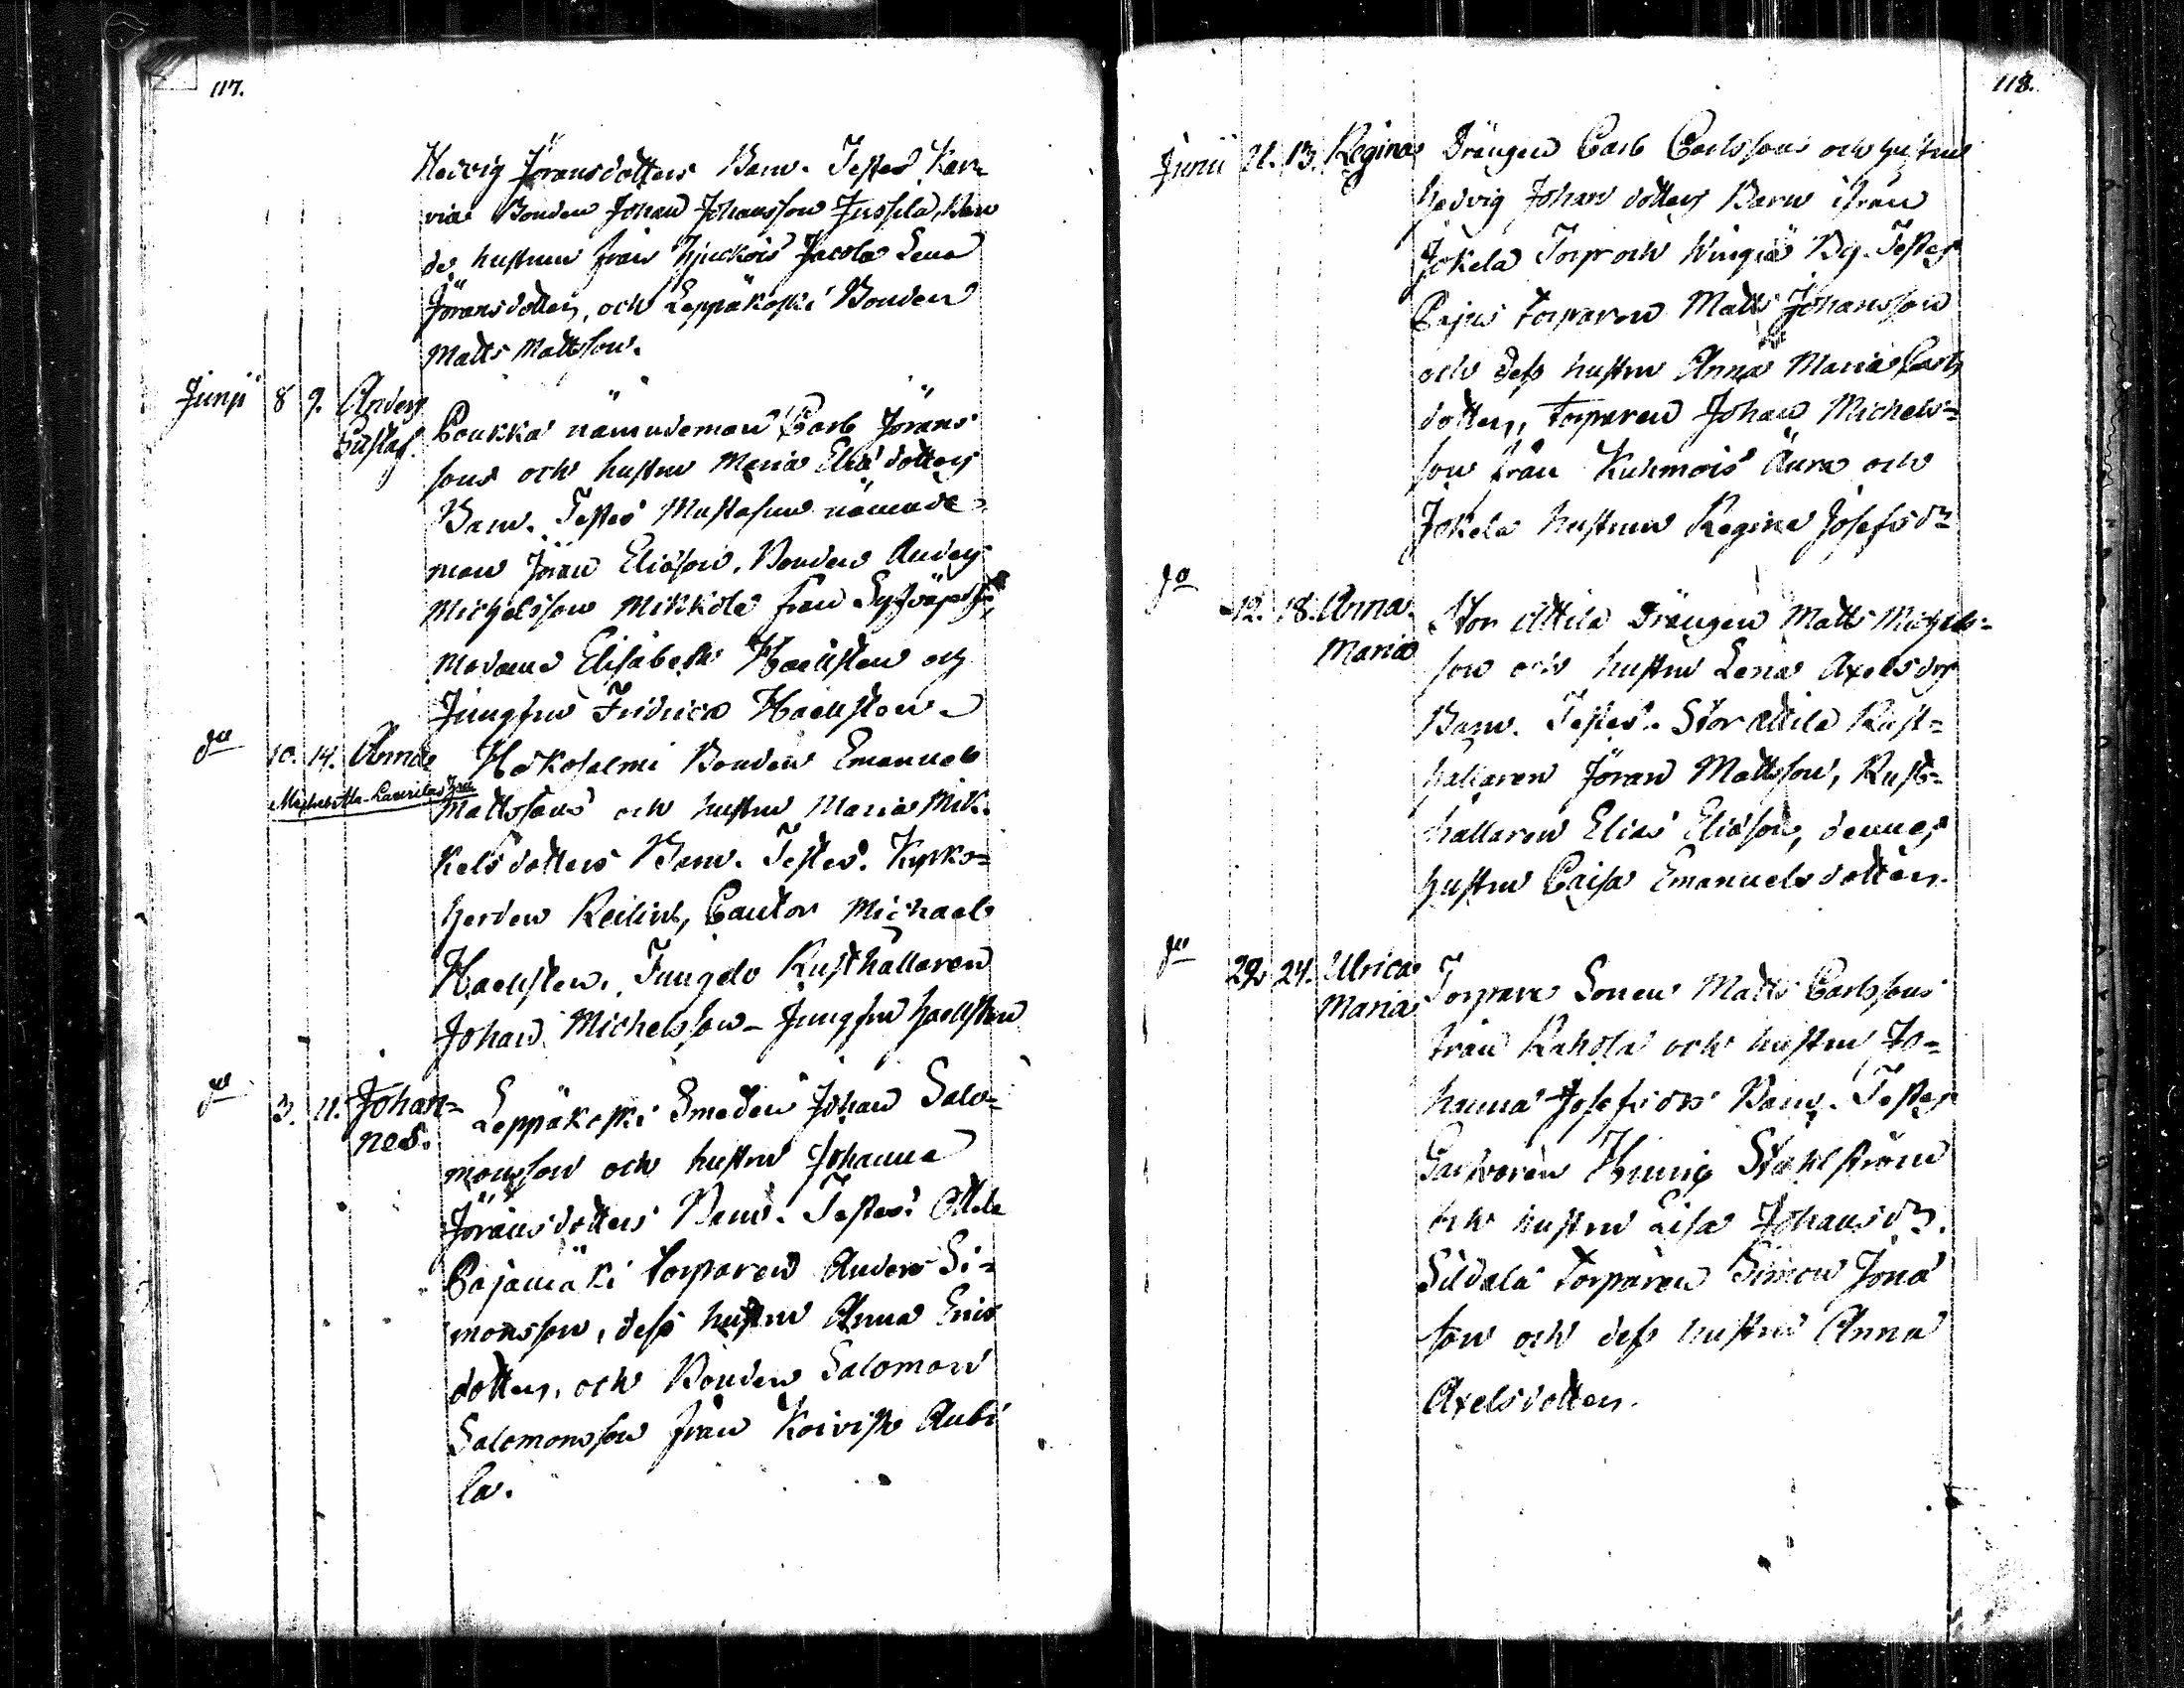 117.
Hedvig Jöransdotters Barn. Testes Kar-
via Bonden Johan Johansson Jussila, Bon
de hustrun från Jacola Lena
Jöransdotter, och Leppäkoski Bonden
Matts Mattsson.
Junii 8 9. Anders Gustaf. Poukka nämndeman Carl Jörans
sons och hustru Maria Eliæ dotters
Barn. Testes Mustasuu nämnde-
man Jöran Eliasson, Bonden Anders
Michelsson Mikkola från
Madame Elisabeth Haellsten och
Jungfru Fridrica Haellsten
do 10. 14. Anna Hokosalmi Bonden Emanuel
Mattssons och hustru Maria Mik-
kelsdotters Barn. Testes. Kyrko-
herden Reilin, Cantor Michael
Haellsten, Rusthållaren
Johan Michelsson - Jungfru Haellsten
do 3. 11. Johan-
nes. Leppäkoski Smeden Johan Salo-
monsson och hustru Johanna
Jöransdotters Barn. Testes: Attila
Pajamäki torparen Anders Si-
monsson, dess hustru Anna Erics
dotter, och Bonden Salomon
Salomonsson från Koivisto Anti
la.
118.
Junii 11. 13. Regina Drängen Carl Carlssons och hustru
Hedvig Johansdotters Barn ifrån
Jokela Torp och By. Testes
Pajus torparen Matts Johansson
och dess hustru Anna Maria Carls
dotter, torparen Johan Michels-
son från Kuhmois Äura och
Jokela hustrun Regina Josefsdr
do 12. 18. Anna
Maria Stor Attila Drängen Matts Michels-
son och hustru Lena Axelsdrs
Barn. Testes. Stor Attila Rust-
hållaren Jöran Mattsson, Rust-
hållaren Elias Eliasson, dennes
hustru Caisa Emanuelsdotter.
do 22 24. Ulrica
Maria Torpare Sonen Matts Carlssons
från Rahola och hustru Jo-
hanna Josefsdrs Barn. Testes
Garfvaren Stählström
och hustru Lisa Johansdr.
torparen Simon Jona
son och dess hustru Anna
Axelsdotter.